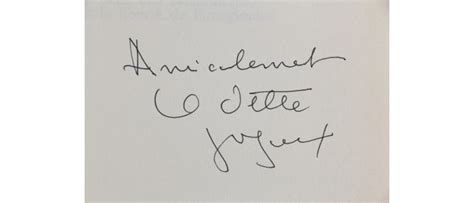 Amicalement
Odette
Joyeux